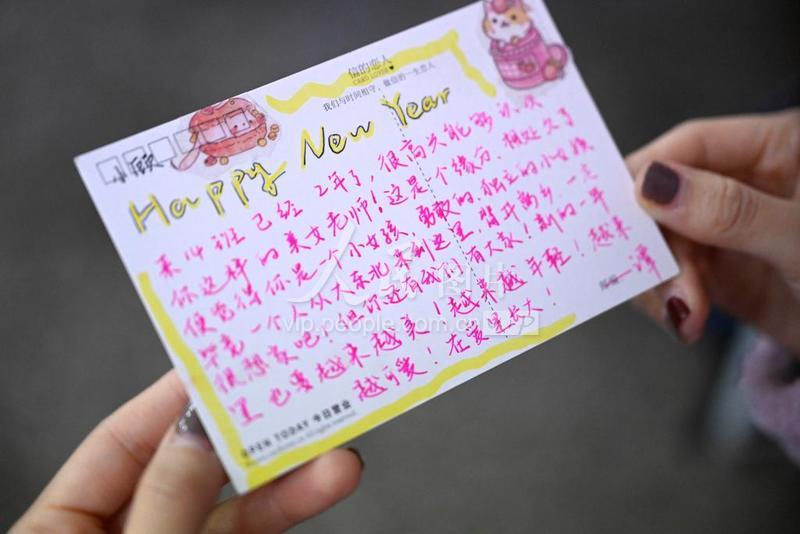 信的恋人
CARD LOVER
我们与时间相守,做信的一生恋人
小顾
Happy New Year
来14班已经2年了,很高兴能够认识
你这样的美女老师!这是个缘分.相处久了
便觉得你是个小女孩,勇敢的独立的小女孩
毕竟一个人从大东北来到这里,背井离乡,一定
很想家吧!但你还有我们,有大家!新的一年
里也要越来越美!越来越年轻!越来
越可爱!在爱里长大!
一泽
OPEN TODAY 今日营业
人民图片
vip.people.com.cn